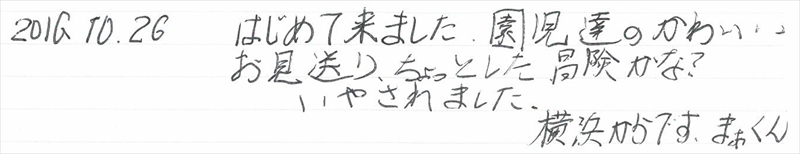 2016.10.26 はじめて来ました.園児達のかわいい
お見送り、ちょっとした冒険かな?
いやされました.
横浜からです、まぁくん